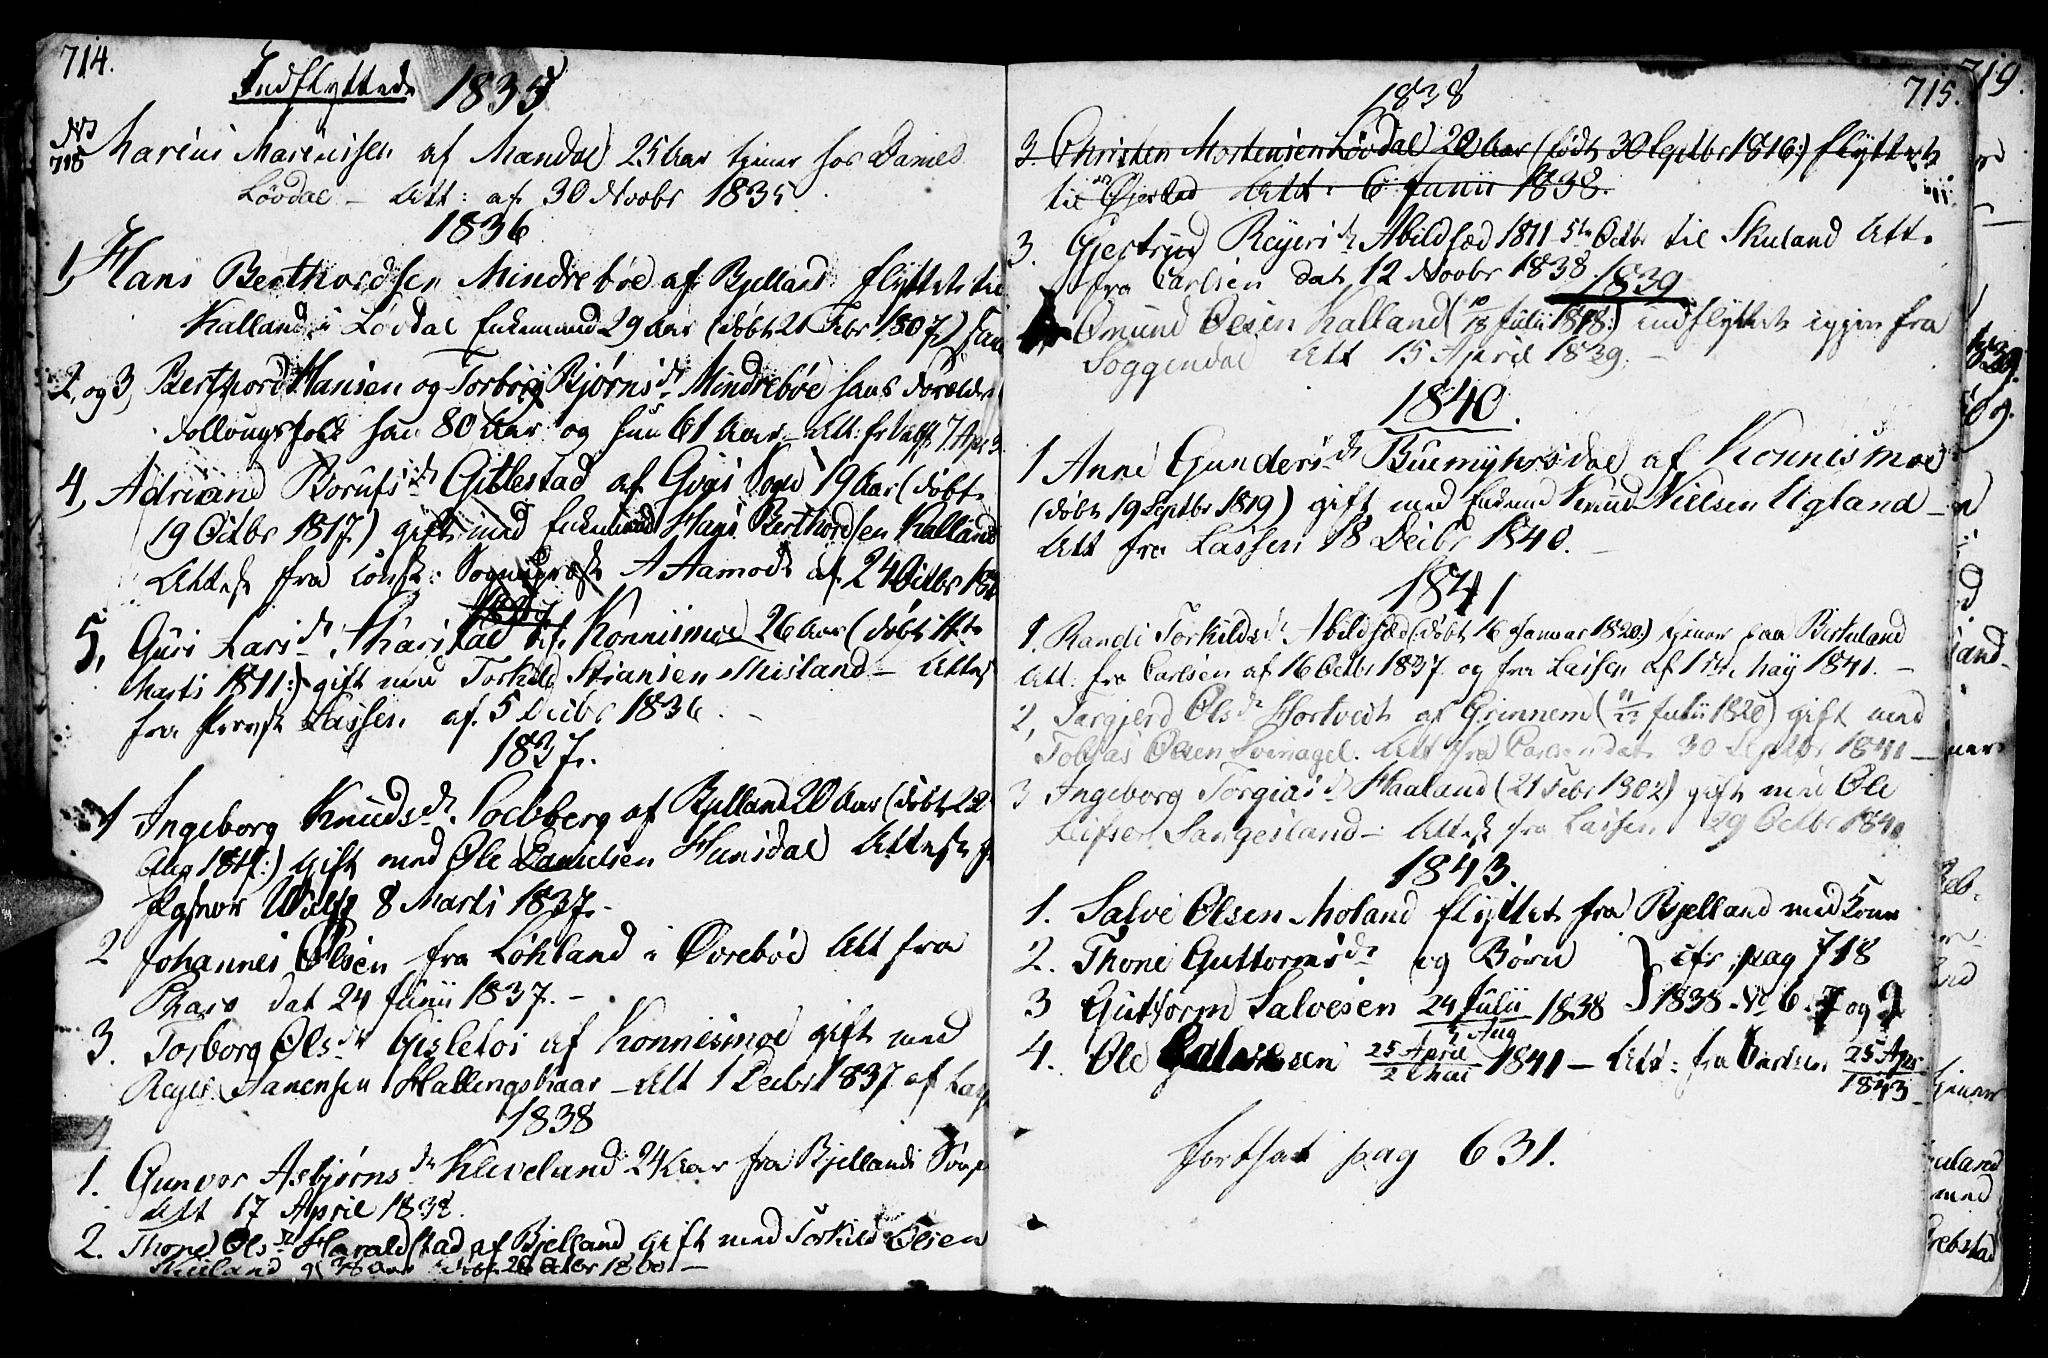 714.
Indflyttede 1835
No 718 Marius Marcussen af Mandal 25 Aar tiener hos Daniel
Løvdal – Att: af 30 Novbr 1835.
1836
1, Hans Berthordsen Mindrebøe af Bjelland flyttet til
Kalland i Løvdal Enkemand 29 Aar (døbt 21 Febr 1807)
2, og 3, Berthord Hansen og Torborg Bjørnsdr Mindrebøe hans Forældre
Follougsfolk han 80 Aar og hun 61 Aar – Att: fr Wulff 7 Apr
4, Adriane Borufsdr Gitlestad af Gyas Sogn 19 Aar (døbt
19 Octbr 1817) gift med Enkemand Hans Berthordsen Kalland
Attest fra const: Sognepræst A Aamodt af 24 Octbr
5, Guri Larsdr Tharistad af Konnismoe 26 Aar (døbt
Marti 1811:) gift med Torkild Stiansen Misland – Attest
fra Provst Lassen af 5 Decbr 1836. –
1837.
1 Ingeborg Knudsdr Solsberg af Bjelland 20 Aar (døbt 22
Aug 1817:) gift med Ole Danielsen Hunsdal Attest fr
Wulff 8 Marti 1837. –
2 Johannes Olsen fra Løhland i Øvrebøe Att fra
Pharo dat 24 Junii 1837. –
3. Torborg Olsdr Gisletoi af Konnismoe gift med
Rejer Sanensen Hallingskaar – Att 1 Decbr 1837 af Lass
1838
1. Gunvor Asbjørnsdr Kleveland 24 Aar fra Bjellands Sogn
Att 17 April 1838.
2. Thone Olsdr Haraldstad af Bjelland gift med Torkild Olsen
Skuland 38 Aar døbt 26 Octbr 1800 –
715.
1838
3. Christen Mortensen Løvdal 22 Aar (født 30 Septbr 1816:) flyttet
til Øjestad Att: 6 Junii 1838.
3. Gjertrud Reyersdr Abildsæd 1811 5te Octbr til Skuland Att.
fra Carlsen dat 12 Novbr 1838
1839
Omund Olsen Kalland (10/18 Julii 1818:) indflyttet igjen fra
Soggendal Att 15 April 1839. –
1840.
1 Anne Gundersdr Buemyhrsdal af Konnismoe
(døbt 19 Septbr 1819) gift med Enkemd Knud Nielsen Ugland –
Att fra Lassen 18 Decbr 1840. –
1841
1. Randi Torkildsdr Abildsæd (døbt 16 Januar 1820:) tiener paa Birkeland
Att: fra Carlsen af 16 Octbr 1837 og fra Lassen af 1ste May 1841. –
2, Targjerd Olsdr Hortvedt af Grinnem (11/23 Julii 1820) gift med
Tobias Olsen Svinagel. Att fra Carlsen dat 30 Septbr 1841 –
3 Ingeborg Torgiusdr Haaland (21 Febr 1802) gift med Ole
Leifsen Sangesland – Attest fra Lassen 29 Octbr 1840
1843.
1. Salve Olsen Moland flyttet fra Bjelland med Kone
2. Thone Guttormsdr og Børn } cfr pag 718
3 Guttorm Salvesen 24 Julii/5 Aug 1838 } 1838 No 6. 7 og
4. Ole Salvesen 25 April/2 Mai 1841 – Att: fra Carlsen 25 Apr/1843 –
fortsat pag 631.
719.